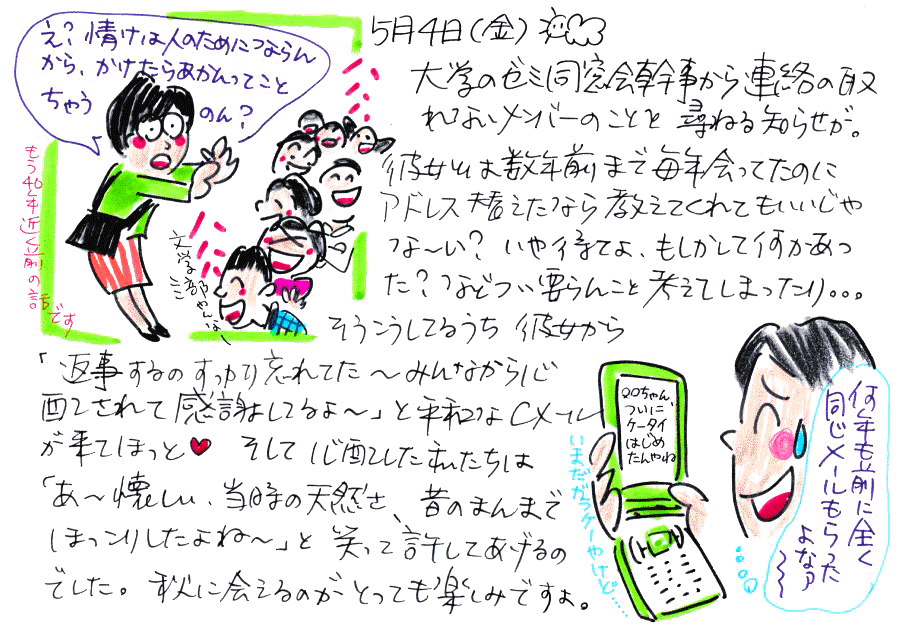 え?情けは人のためにならん
から、かけたらあかんってこと
ちゃう
のん?
もう40年近く前の話
です
文学部やんな
ゼミ
5月4日(金)
大学のゼミ同窓会幹事から連絡の取
れないメンバーのことを尋ねる知らせが。
彼女とは数年前まで毎年会ってたのに
アドレス替えたなら教えてくれてもいいじゃ
な〜い?いや待てよ、もしかして何かあっ
た?などつい要らんこと考えてしまったり...
そうこうしてるうち彼女から
「返事するのすっかり忘れてた〜みんなから心
配されて感謝してるよ〜」と平和なCメール
が来てほっと♥ そして心配した私たちは
「あ〜懐しい、当時の天然さ、昔のまんまで
ほっこりしたよね〜」と笑って許してあげるの
でした。秋に会えるのがとっても楽しみですょ。
○○ちゃん、
ついに
ケータイ
はじめ
たんやね
いまだガラケーやけど......
何年も前に全く
同じメールもらった
よなァ〜〜